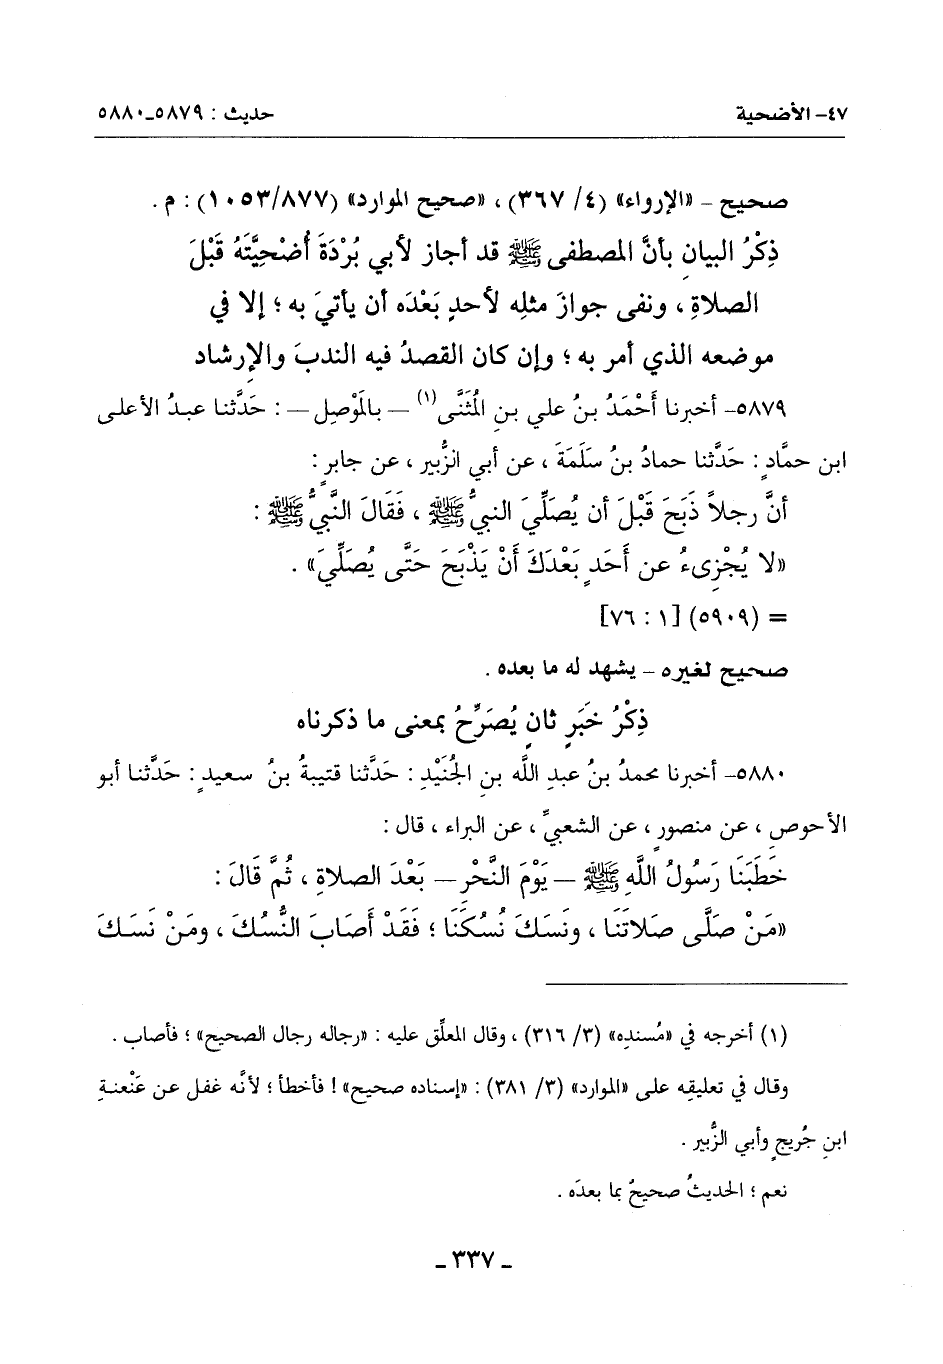 ٤٧- الأضحية حديث : ٥٨٧٩-٥٨٨٠
صحيح - «الإرواء» (٤/ ٣٦٧) ، «صحيح الموارد» (٨٧٧/ ١٠٥٣) : م .
ذِكْرُ البيانِ بأنَّ المصطفى ﷺ قد أجاز لأبي بُرْدَةَ أُضْحِيَّتَهُ قَبْلَ
الصلاةِ ، ونفى جوازَ مثلِه لأحدٍ بَعْدَه أن يأتيَ به ؛ إلا في
موضعه الذي أمر به ؛ وإن كان القصدُ فيه الندبَ والإرشادَ
٥٨٧٩- أخبرنا أَحْمَدُ بنُ علي بنِ المُثَنَّى(١) — بالمَوْصِلِ — : حَدَّثنا عبدُ الأعلى
ابن حمَّادٍ : حَدَّثنا حمادُ بنُ سَلَمَةَ ، عن أبي الزُّبير ، عن جابرٍ :
أنَّ رجلاً ذَبَحَ قَبْلَ أن يُصَلِّيَ النبيُّ ﷺ ، فَقَالَ النَّبيُّ ﷺ :
«لا يُجْزِىءُ عن أَحَدٍ بَعْدَكَ أَنْ يَذْبَحَ حَتَّى يُصَلِّيَ» .
= (٥٩٠٩) [١ : ٧٦]
صحيح لغيره - يشهد له ما بعده .
ذِكْرُ خَبَرٍ ثانٍ يُصَرِّحُ بمعنى ما ذكرناه
٥٨٨٠- أخبرنا محمدُ بنُ عبدِ اللَّه بنِ الجُنَيْدِ : حَدَّثنا قتيبةُ بنُ سعيدٍ : حَدَّثنا أبو
الأحوصِ ، عن منصورٍ ، عن الشعبيِّ ، عن البراء ، قال :
خَطَبَنَا رَسُولُ اللَّهِ ﷺ — يَوْمَ النَّحْرِ — بَعْدَ الصلاةِ ، ثُمَّ قَالَ :
«مَنْ صَلَّى صَلاتَنَا ، ونَسَكَ نُسُكَنَا ؛ فَقَدْ أَصَابَ النُّسُكَ ، ومَنْ نَسَكَ
(١) أخرجه في «مُسندِه» (٣/ ٣١٦) ، وقال المعلِّق عليه : «رجاله رجال الصحيح» ؛ فأصاب .
وقال في تعليقِه على «الموارد» (٣/ ٣٨١) : «إسناده صحيح» ! فأخطأ ؛ لأنَّه غفل عن عَنْعنةِ
ابنِ جُريجٍ وأبي الزُّبير .
نعم ؛ الحديثُ صحيحٌ بما بعدَه .
- ٣٣٧ -